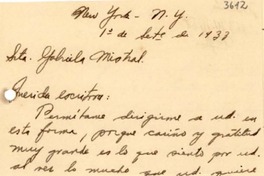 3642
New York - N. Y.
1º de Setº de 1933
Srta. Gabriela Mistral.
Querida escritora:
Permítame dirigirme a ud. en
esta forma, porque cariño y gratitud
muy grande es lo que siento por ud.
al ver lo mucho que ud. quiere